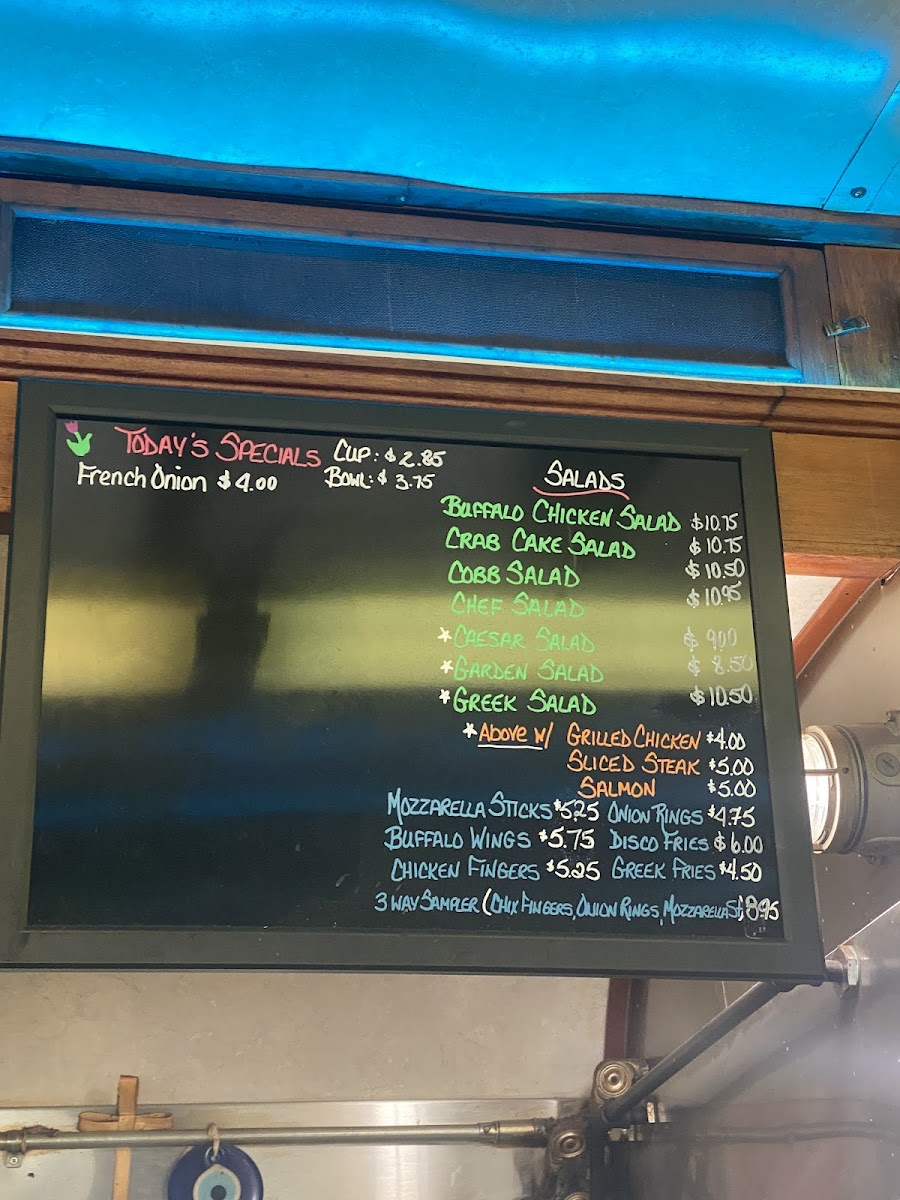 TODAY'S SPECIALS CUP: $2.85
French Onion $4.00 BOWL: $3.75
SALADS
BUFFALO CHICKEN SALAD $10.75
CRAB CAKE SALAD $10.75
COBB SALAD $10.50
CHEF SALAD $10.95
*CAESAR SALAD $9.00
*GARDEN SALAD $8.50
*GREEK SALAD $10.50
*ABOVE W/ GRILLED CHICKEN $4.00
SLICED STEAK $5.00
SALMON $5.00
MOZZARELLA STICKS $5.25 ONION RINGS $4.75
BUFFALO WINGS $5.75 DISCO FRIES $6.00
CHICKEN FINGERS $5.25 GREEK FRIES $4.50
3 WAY SAMPLER (CHIX FINGERS, ONION RINGS, MOZZARELLA 8.95